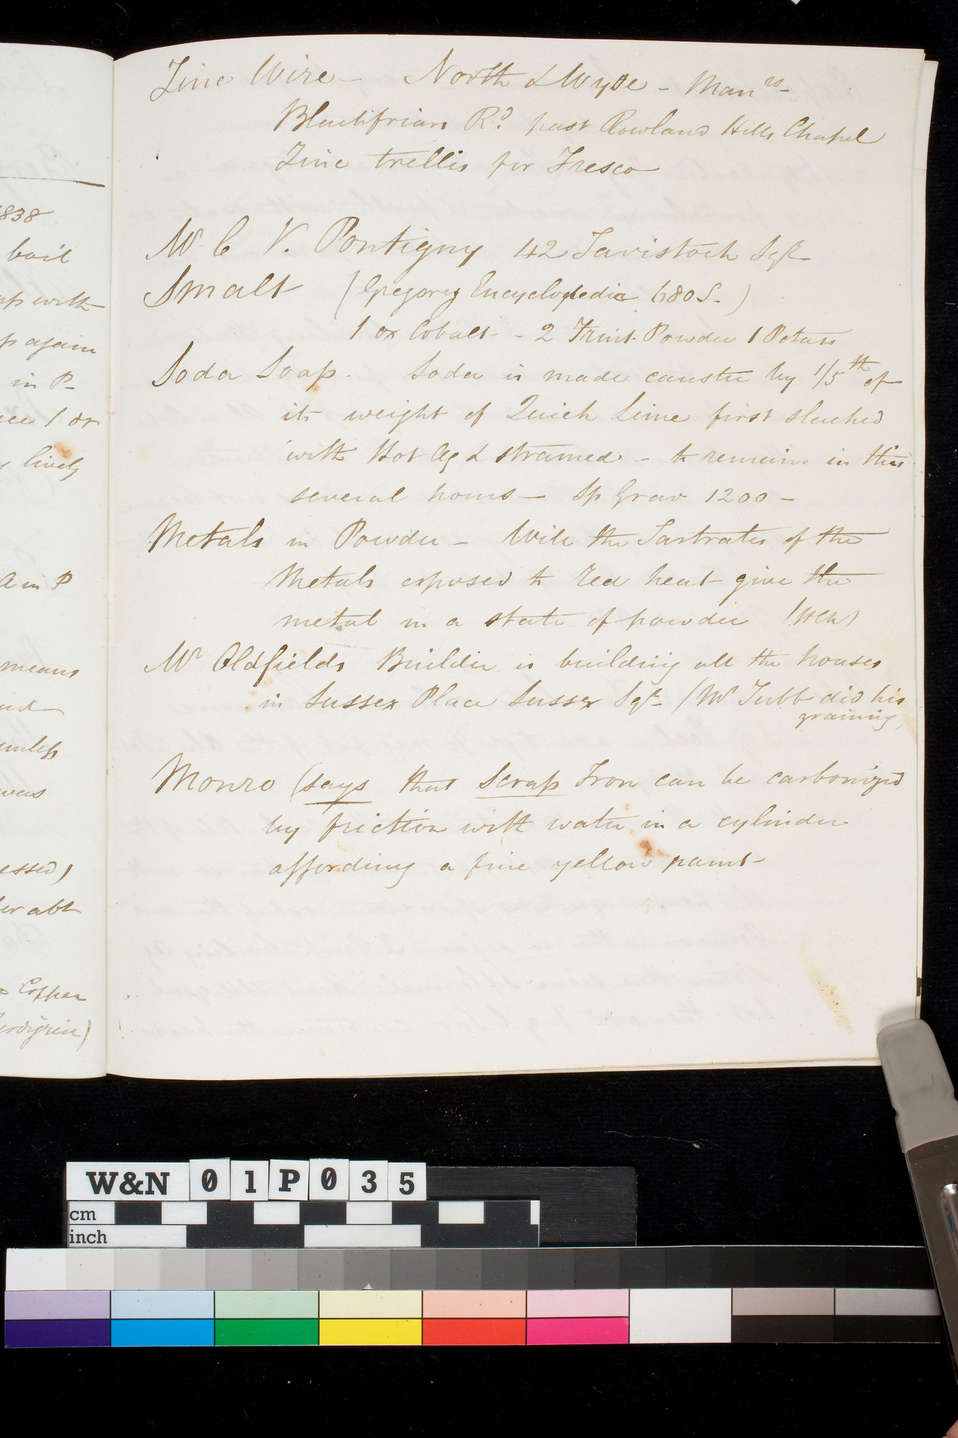 1838
boil
with
again
in P
1 oz
lively
A in P
means
and
unless
was
essed)
abt
Copper
Verdigris)
Zinc Wire — North & Wyde — Manrs —
Blackfriars Rd. past Rowland Hills Chapel
Zinc trellis for Fresco
Mr. C V. Pontigny 42 Tavistock Sqre
Smalt (Gregory Encyclopedia 680 S. )
1 oz Cobalt - 2 Flint Powder 1 Potass
Soda Soap. Soda is made caustic by 1/5th of
its weight of Quick Lime first slacked
with Hot Aq & strained - to remain in this
several hours — Sp Grav 1200 —
Metals in Powder — the Tartrates of the
Metals exposed to red heat give the
metal in a state of powder
Mr Oldfields Builder is building all the houses
in Sussex Place Sussex Sqre (Mr Tubb did his
graining)
Monro (says that Scrap Iron can be carbonized
by friction with water in a cylinder
affording a fine yellow paint —
W&N 01P035
cm
inch